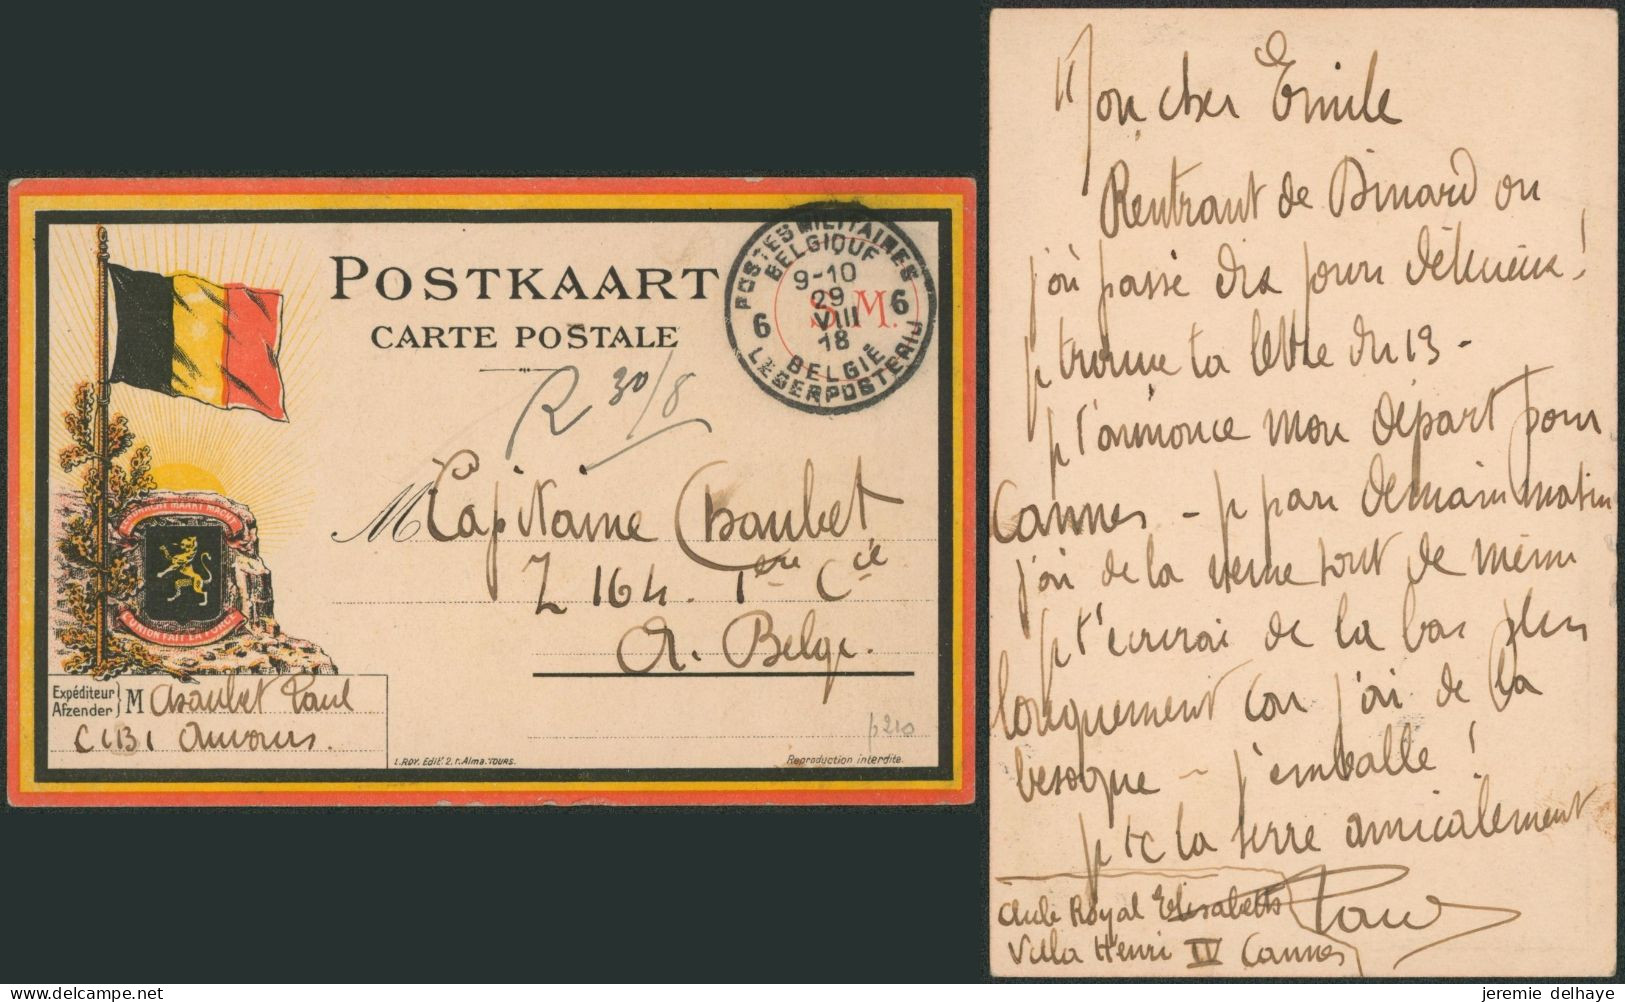 POSTKAART
CARTE POSTALE
POSTES MILITAIRES
BELGIQUE
9-10
29
VIII
18
6 6
BELGIË
LEGERPOSTERIJ
S.M.
R 30/8
M Capitaine Chaubet
Z 164. 1ère Cie
A. Belge.
EENDRACHT MAAKT MACHT
L'UNION FAIT LA FORCE
Expéditeur
Afzender
M Chaubet Paul
CIBI Auvours.
L. ROY. Edit. 2. r. Alma. TOURS.
Reproduction interdite.
p210
Mon cher Emile
Rentrant de Dinard où
j'ai passé dix jours délicieux!
je trouve ta lettre du 13 -
je t'annonce mon départ pour
Cannes - je pars demain matin
j'ai de la veine tout de même
je t'écrirai de la bas plus
longuement car j'ai de la
besogne - j'emballe!
je te la serre amicalement
Paul
Club Royal Elisabeth
Villa Henri IV Cannes
jeremie delhaye